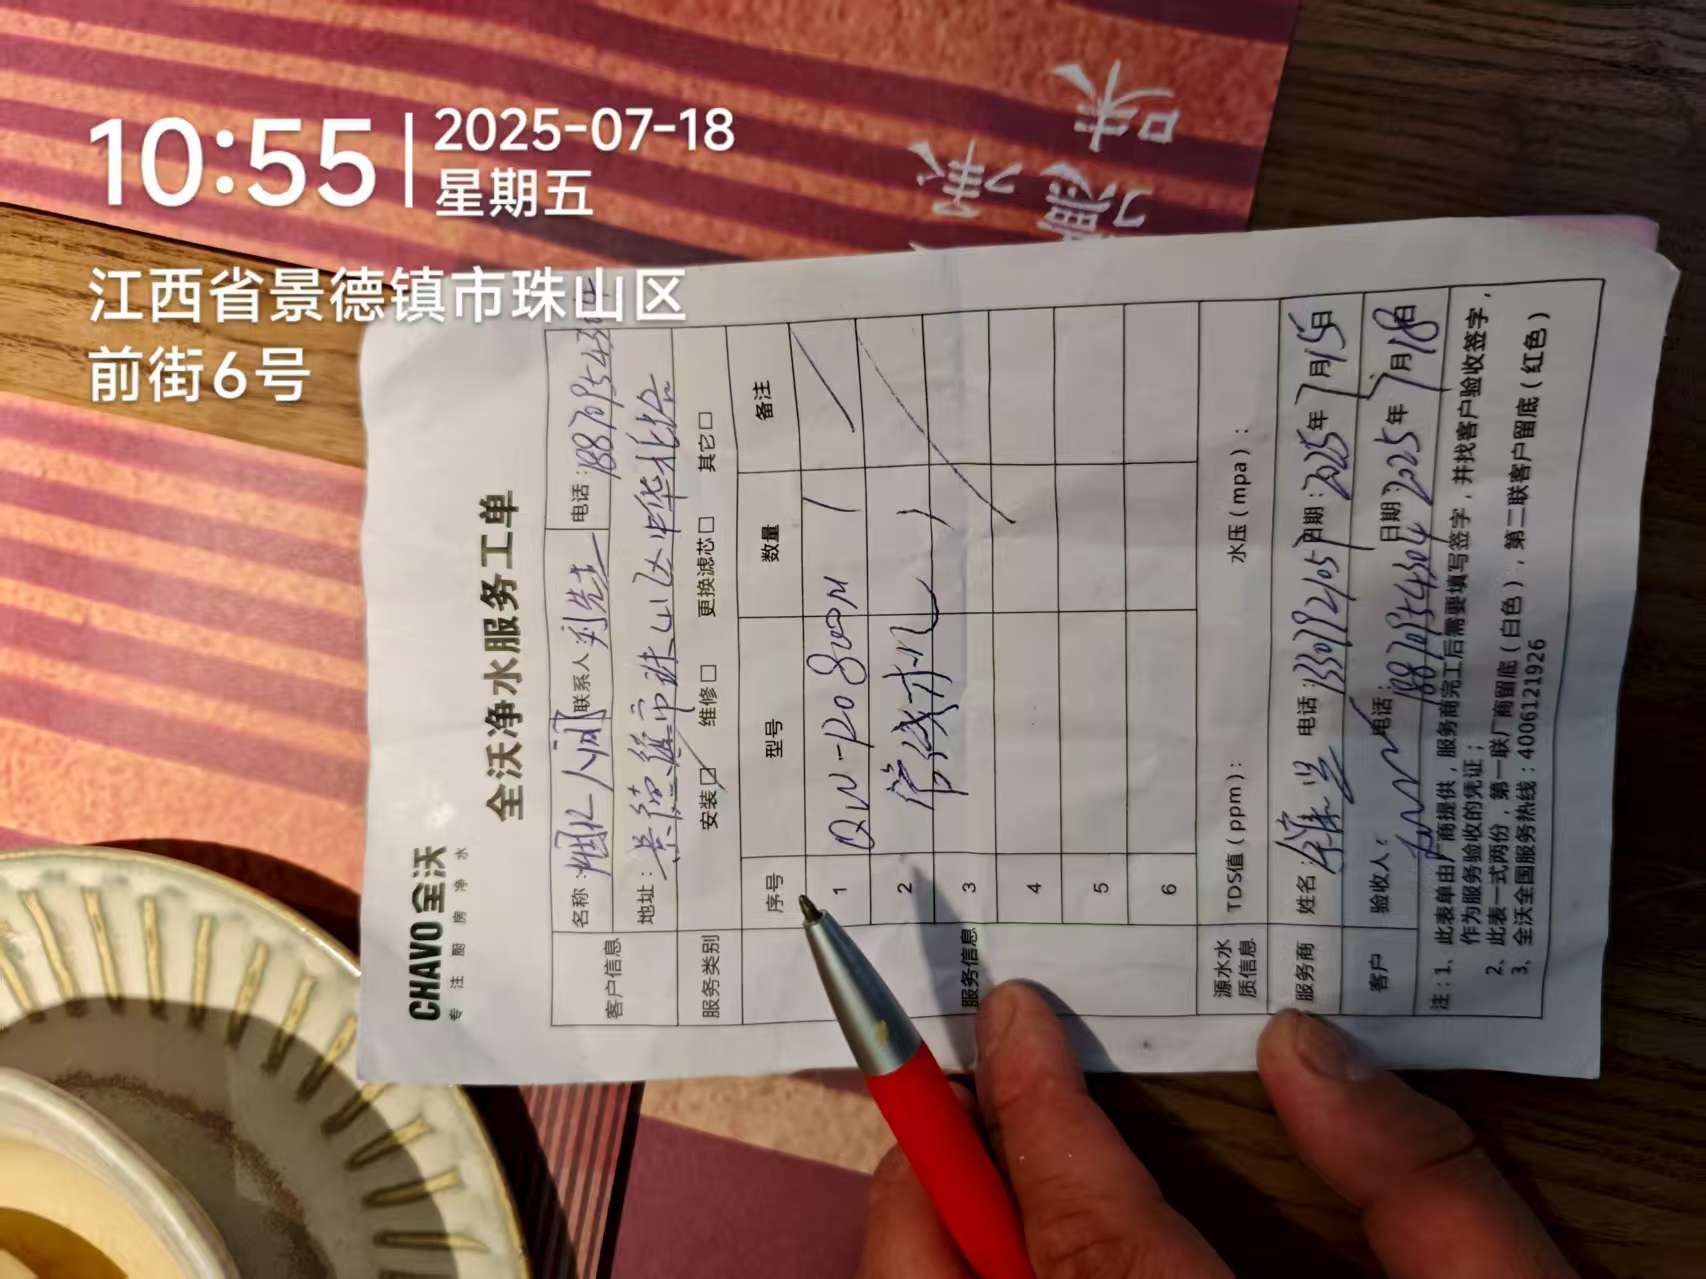 10:55
2025-07-18
星期五
江西省景德镇市珠山区
前街6号
味
CHAVO 全沃
专注厨房净水
全沃净水服务工单
客户信息
名称： 联系人 刘先生 电话：
地址：景德镇市珠山区中华北路
服务类别 安装□ 维修□ 更换滤芯□ 其它□
服务信息
序号 型号 数量 备注
1 1
2 管线机 1
3
4
5
6
源水水质信息 TDS值(ppm): 水压(mpa):
服务商 姓名: 电话:13307982405 日期:2025年7月15日
客户 验收人: 电话:18870954304 日期 2025年7月18日
注:1、此表单由厂商提供，服务商完工后需要填写签字，并找客户验收签字，
作为服务验收的凭证；
2、此表一式两份，第一联厂商留底(白色)，第二联客户留底(红色)
3、全沃全国服务热线:4006121926